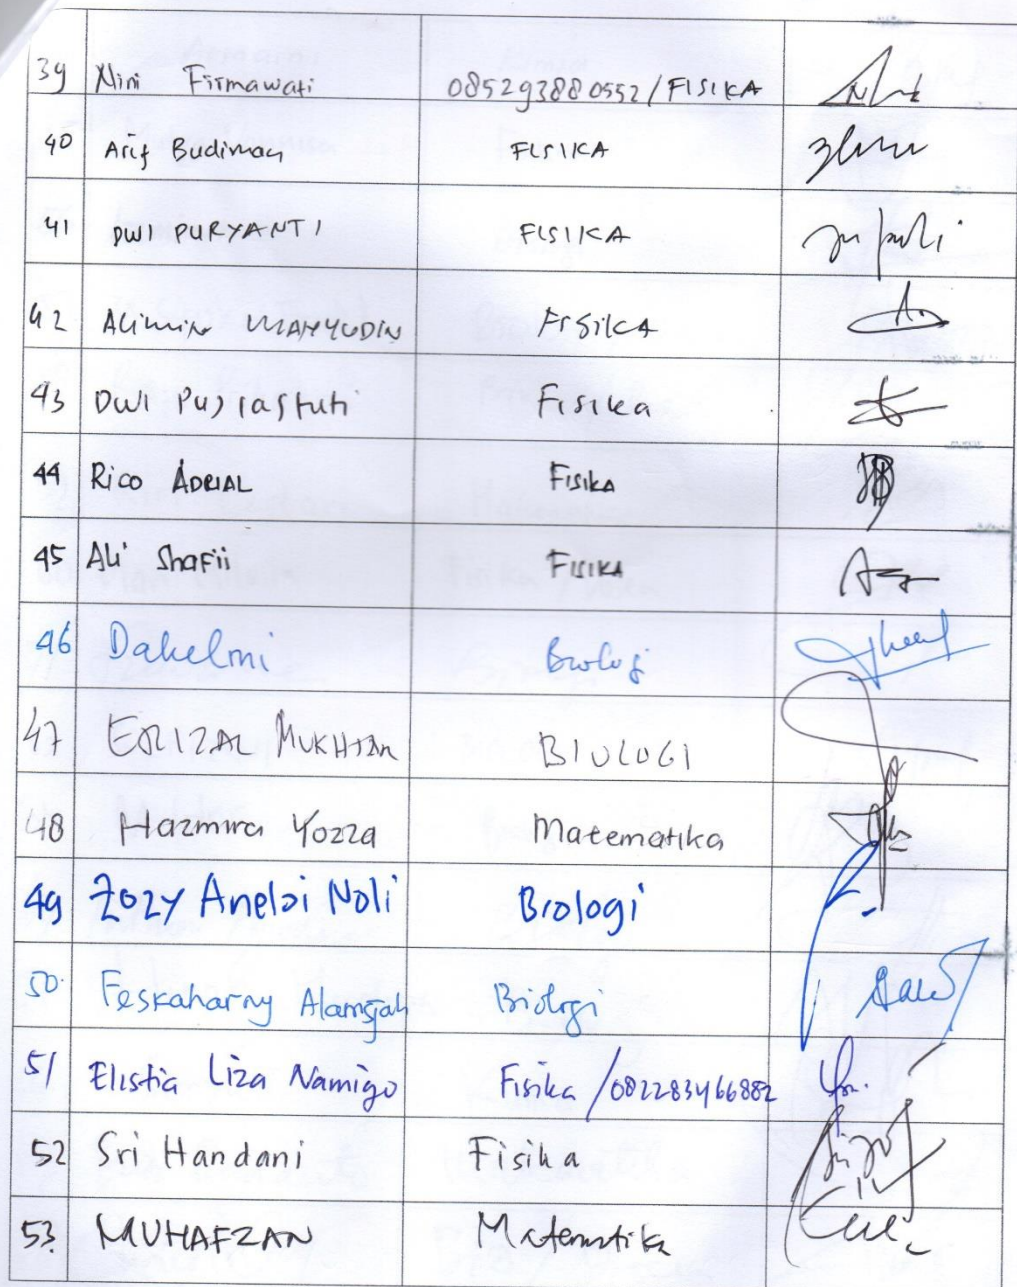 39 Nini Firmawati 085293880552/FISIKA
40 Arif Budiman FISIKA
41 DWI PURYANTI FISIKA
42 Alimin MAHYUDIN FISIKA
43 Dwi Pujiastuti Fisika
44 Rico ADRIAL Fisika
45 Ali Shafii FISIKA
46 Dahelmi Biologi
47 ERIZAL MUKHTAR BIOLOGI
48 Hazmira Yozza Matematika
49 Zozy Aneloi Noli Biologi
50. Feskaharny Alamsjah Biologi
51 Elistia Liza Namigo Fisika /082283466882
52 Sri Handani Fisika
53. MUHAFZAN Matematika